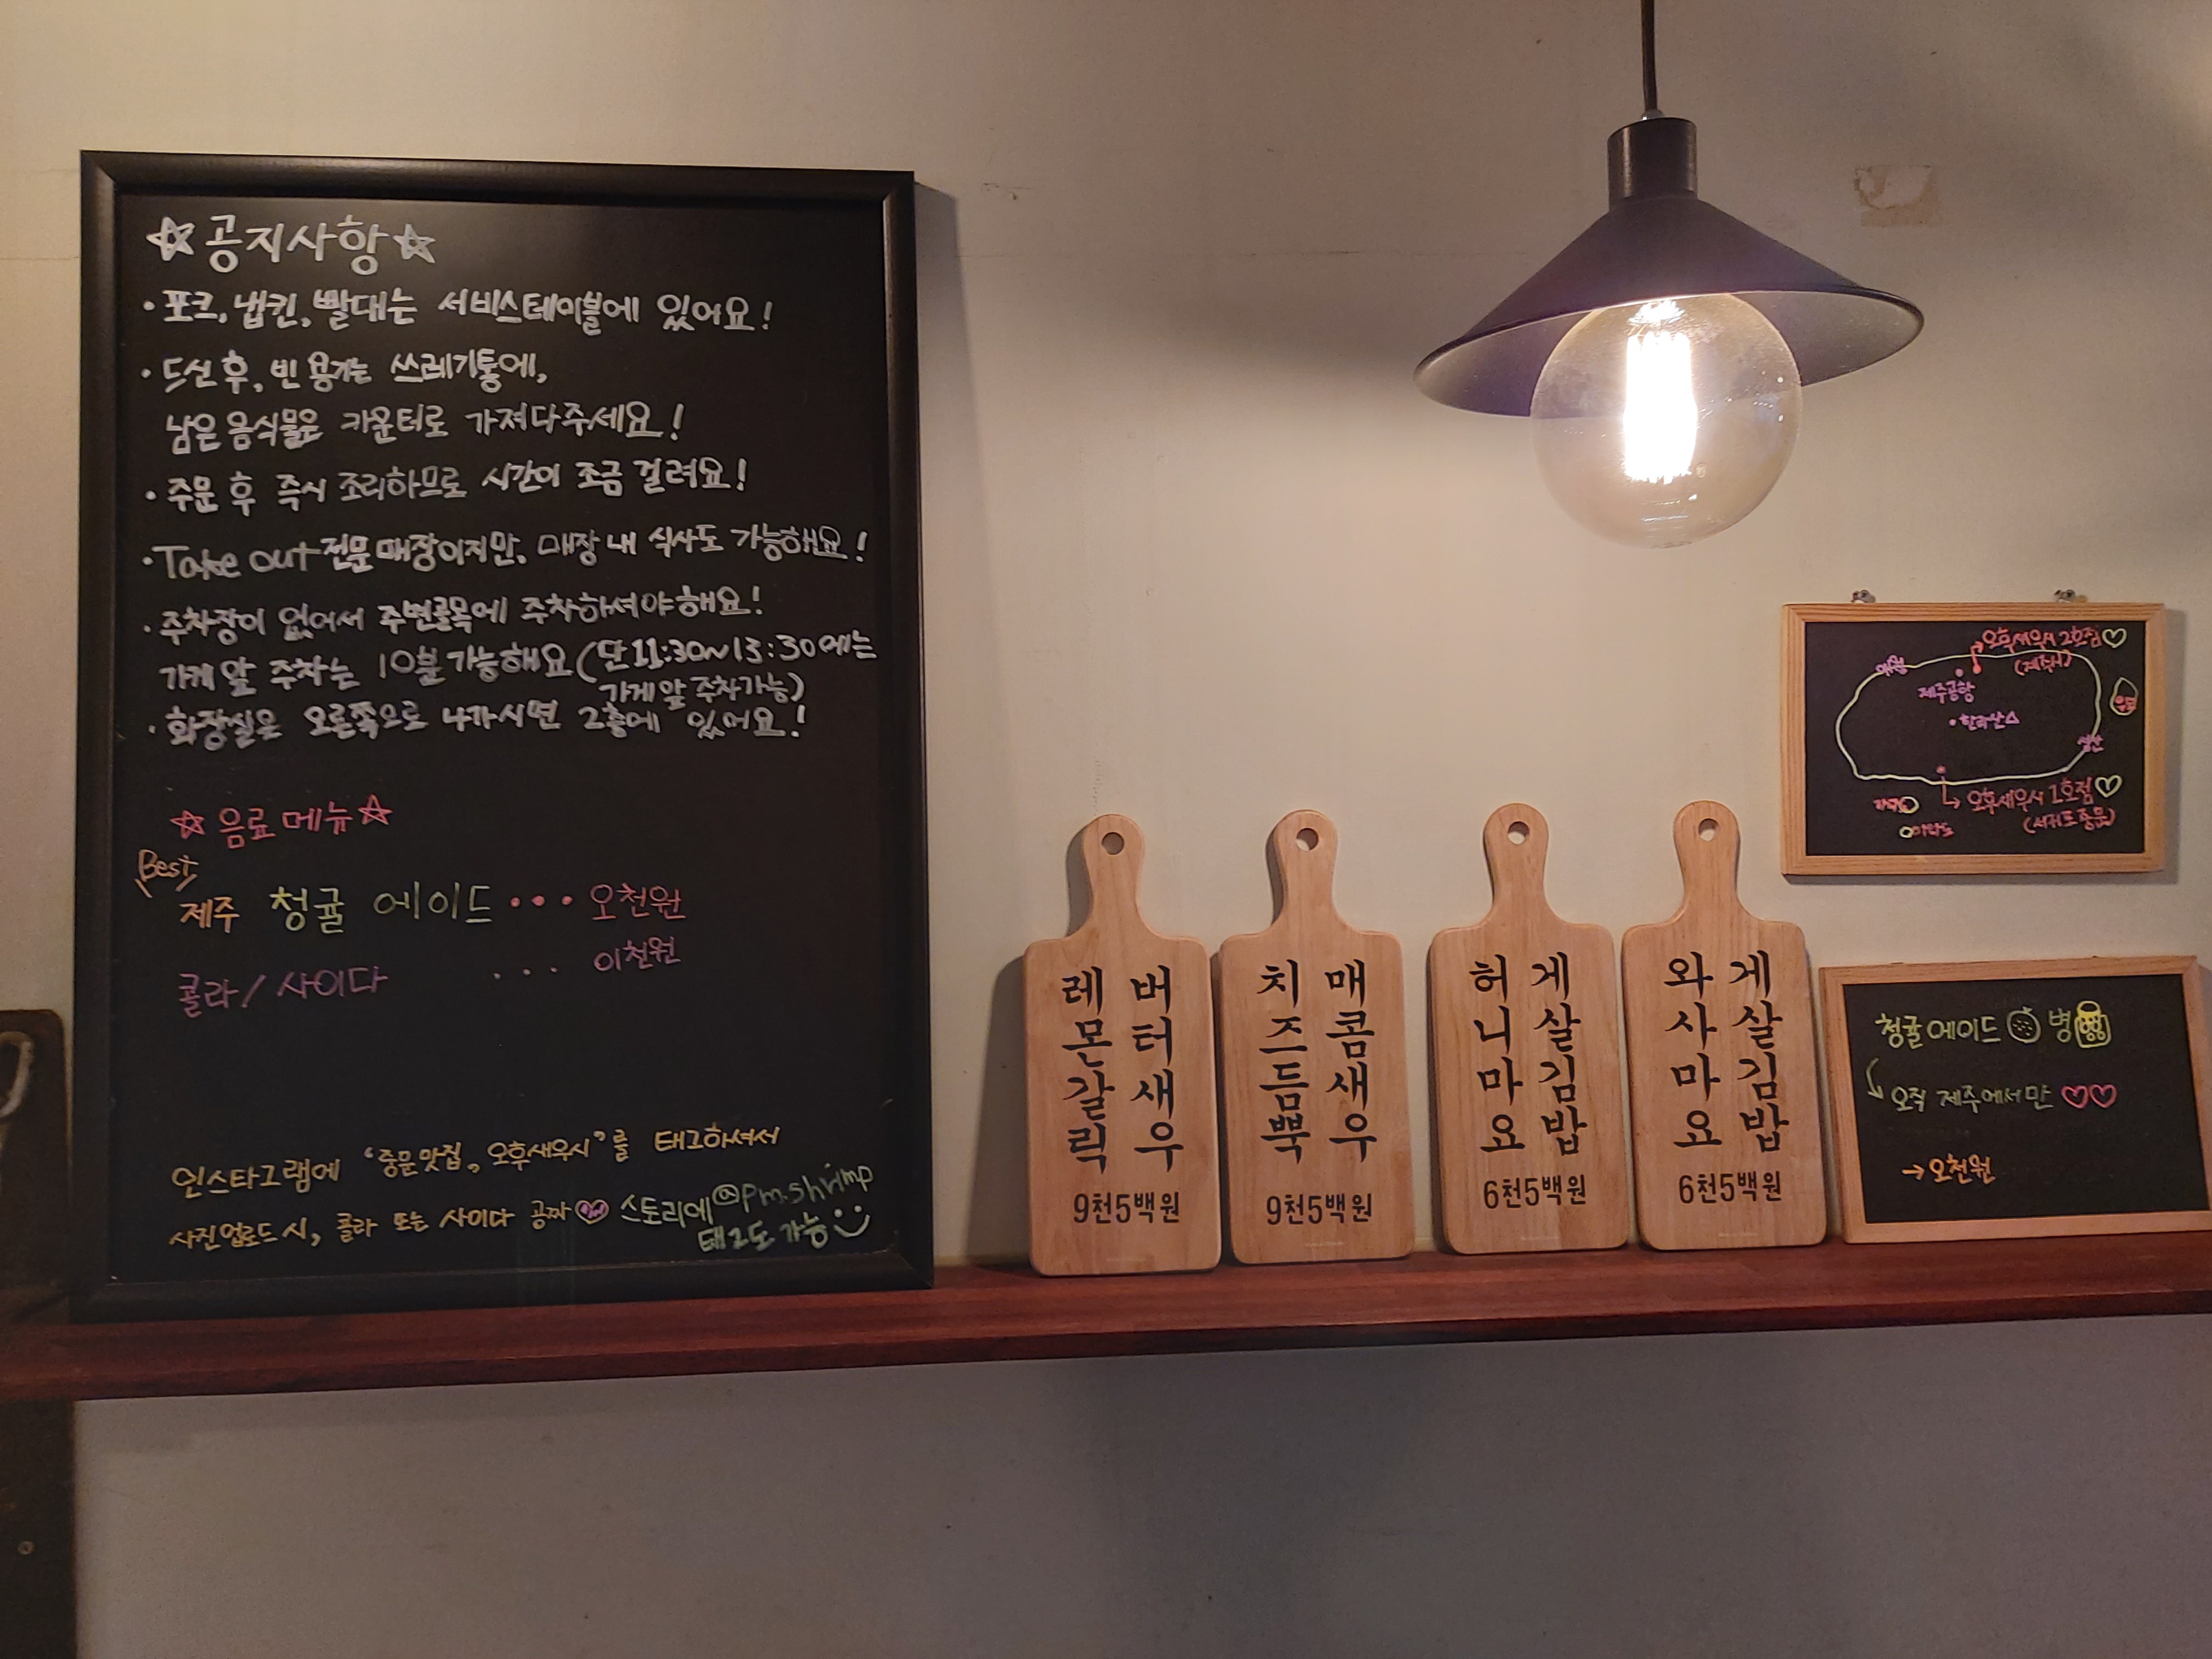 ☆공지사항☆
· 포크, 냅킨, 빨대는 서비스테이블에 있어요!
· 드신 후, 빈 용기는 쓰레기통에,
남은 음식물은 카운터로 가져다주세요!
· 주문 후 즉시 조리하므로 시간이 조금 걸려요!
· Take out 전문매장이지만, 매장 내 식사도 가능해요!
· 주차장이 없어서 주변골목에 주차하셔야해요!
가게 앞 주차는 10분 가능해요 (단 11:30~13:30에는
가게 앞 주차가능)
· 화장실은 오른쪽으로 나가시면 2층에 있어요!
☆음료 메뉴☆
Best
제주 청귤 에이드 ··· 오천원
콜라/사이다 ... 이천원
인스타그램에 '중문맛집, 오후새우시'를 태그하셔서
사진업로드 시, 콜라 또는 사이다 공짜♡ 스토리에 @pm.shrimp
태그도 가능
레몬갈릭
버터새우
9천5백원
치즈듬뿍
매콤새우
9천5백원
허니마요
게살김밥
6천5백원
와사마요
게살김밥
6천5백원
오후새우시 2호점♡
(제주시)
제주공항
·한라산△
성산
오후새우시 1호점♡
(서귀포중문)
청귤에이드 병
오직 제주에서만 ♡♡
→오천원